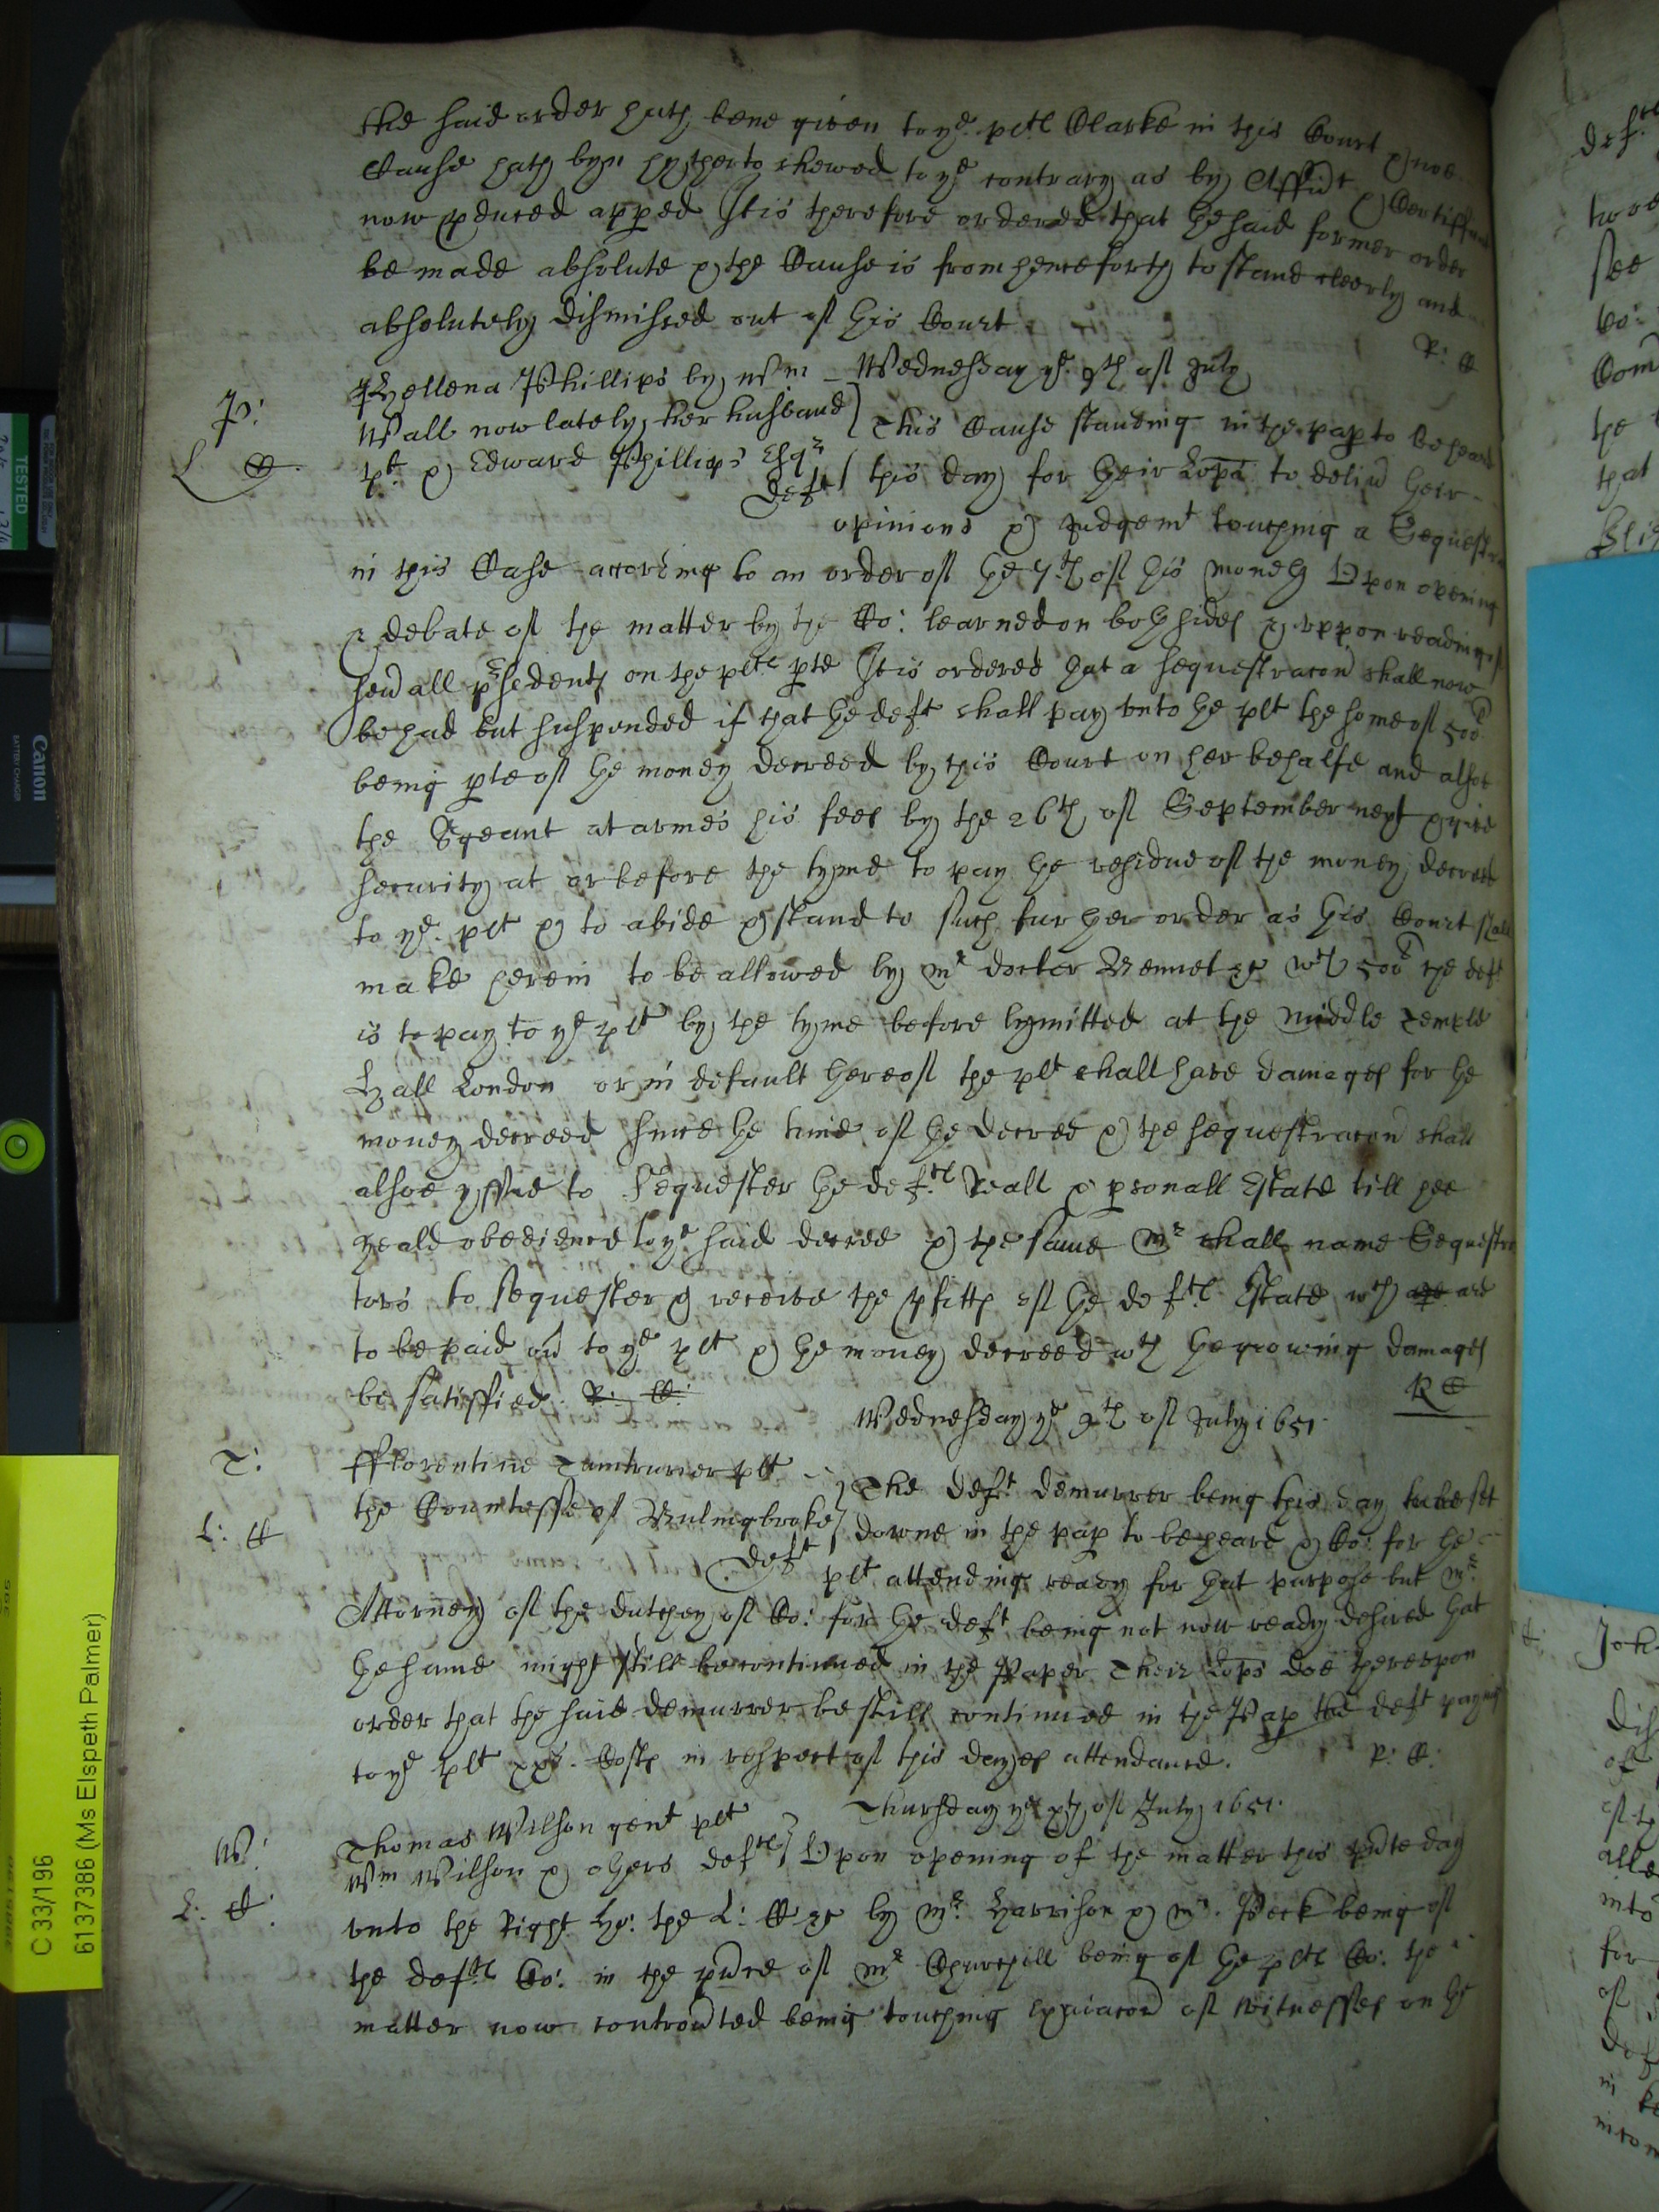 the said order hath bene given to ye. pltes Clarke in this Court & noe
Cause hath byn hytherto shewed to ye contrary as by Affidt & Certifficate
now pduced apped It is therefore ordered that the said former order
be made absolute & the Cause is from henceforth to stand cleerly and
absolutely dismissed out of this Court
R: C
Hellena Phillips by Wm
Wall now lately her husband
plt. & Edward Phillips Esqr
Deft
P:
L C.
Wednesday ye. 9th of July
This Cause standing in the pap to be heard
this day for their Lopps to delivr their
opinions & Judgemt touching a Sequestracon
in this Case according to an order of the 4th of this moneth Upon opening
& debate of the matter by the Co: learned on both sides & uppon reading of
sevall presedents on the pltes pte It is ordered that a sequestracon shall now
be had but suspended if that the deft shall pay unto the plt the some of 500l
being pte of the money decreed by this Court on her behalfe and alsoe
the Sgeant at armes his fees by the 26th of September next & give
security at or before the tyme to pay the residue of the money decreed
to ye. plt & to abide & stand to such further order as this Court shall
make herein to be allowed by mr doctor Bennet &c wch 500l the deft
is to pay to ye plt by the tyme before lymitted at the Middle Temple
Hall London or in default thereof the plt shall have damages for the
money decreed since the time of the decree & the sequestracon shall
alsoe yssue to Sequester the deftes Reall & psonall Estate till hee
yeald obedience to ye said decree & the same Mr shall name Sequestra
tors to sequester & receive the pfitts of the deftes Estate wch are are
to be paid ovr to ye plt & the money decreed wth the growing damages
be satisffied. R: C:
R C
Wednesday ye 9th of July 1651.
T:
L: C
fflorentine Tainturier plt
the Countesse of Bulingbroke
Deft
The deft demurrer being this day to be set
downe in the pap to be heard & Co: for the
plt attending ready for that purpose but mr
Attorney of the dutchey of Co: for the deft being not now ready desired that
the same might still be continued in the Paper Their Lopps doe thereupon
order that the said demurrer be still continued in the Pap the deft paying
to ye plt xxs. Costs in respect of this dayes attendance. R: C:
Thursday ye xth of July 1651.
W:
L: C:
Thomas Wilson gent plt
Wm Wilson & others deftes
Upon opening of the matter this psnte day
unto the Right Ho: the L: C &c by Mr. Harrison & Mr. Peck being of
the deftes Co: in the psnce of Mr Churchill being of the pltes Co: the
matter now controvrted being touching exaiacon of witnesses on the
C 33/196
6137386 (Ms Elspeth Palmer)
TESTED
Canon
BATTERY CHARGER